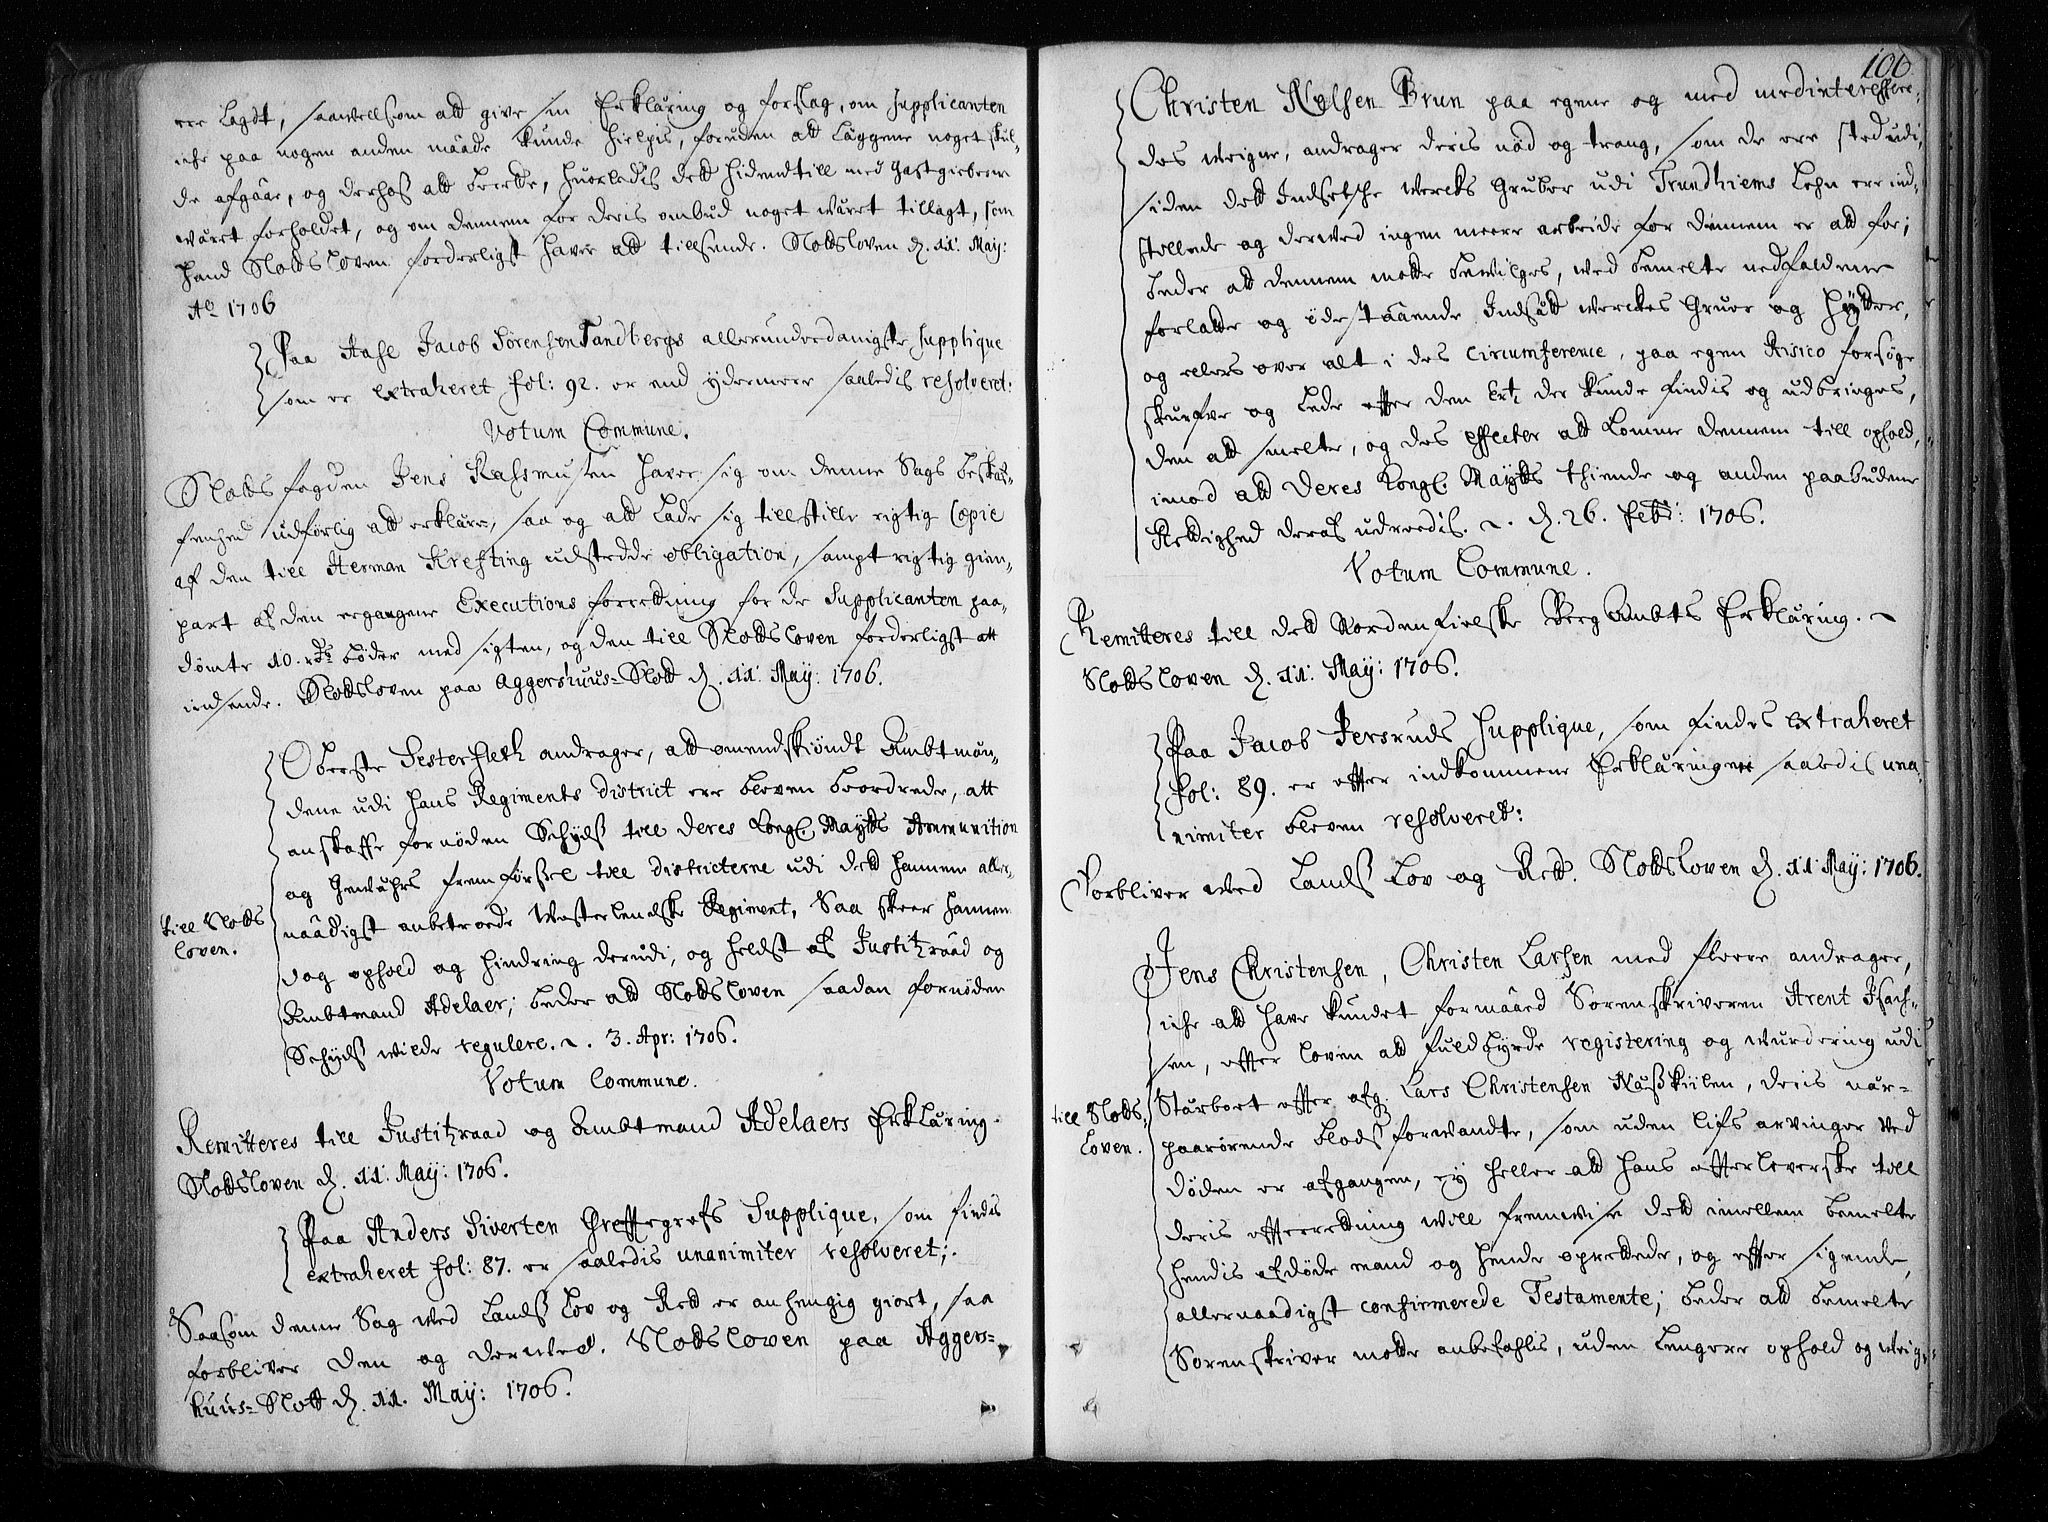 ere lagdt, saavellsom att give sin Erklæring og forslag, om Supplicanten
iche paa nogen anden maade kunde hielpis, foruden att Læggene noget skul-
de afgaae, og derhos att berette, huorledis dett hidendtill med Gastgieberne
været forholdet, og om dennem for deris ombud noget været tillagt, som
hand Slodtsloven forderligst haver att tillsende. Slodtsloven d. 11. May:
Ao 1706
Paa Aase Jacob Sørensen Sandbergs allerunderdanigste Supplique
som er extraheret fol: 92. er end ydermeere saaledis resolveret:
Votum Commune.
Slodts fogden Jens Rasmusen haver sig om denne Sags beskaf-
fenhed udførlig att erklære, saa og att lade sig tillstille rigtig Copie
af den till Herman Krefting udstedde obligation, sampt rigtig gien-
part af den ergangene Executions forretning for de Supplicanten paa-
dømte 10. rdr bøder med sigten, og den till Slodtsloven forderligst att
indsende. Slodtsloven paa Aggershuus-Slott d. 11. May: 1706.
Oberste Sesterfleth andrager, att omendskiøndt Ambtmæn-
dene udi hans Regiments district ere bleven beordrede, att
anskaffe fornøden Schyds till Deres Kongl. Maytts Ammunition
og Gewehrs fremførsel till districterne udi dett hannem aller-
naadigst anbetroede Westerlendske Regiment, Saa skeer hannem
dog ophold og hindring derudi, og heldst af Justitzraad og
Ambtmand Adelaer; beder att Slodtsloven saadan fornøden
Schyds wilde regulere. 3. Apr: 1706.
till Slodts
loven.
Votum Commune.
Remitteres till Justitzraad og Ambtmand Adelaers Erklæring.
Slodtsloven d. 11. May: 1706.
Paa Anders Siverten Greffegrefs Supplique, som findis
extraheret fol: 87. er saaledis unanimiter resolveret;
Saasom denne Sag ved Landß Lov og Rett er anhengig giort, saa
forbliver den og derved. Slodtsloven paa Aggers-
huus-Slott d. 11. May: 1706.
100.
Christen Nelsen Brun paa egene og med medinteressere-
des veigne, andrager deris nød og trang, som de ere sted udi,
siden dett Indsetsche Vercks Gruber udi Trundhiems Lehn ere ind-
stellede og derved ingen meere arbeide for dennem er att for;
beder att dennem motte bevilges, ved bemelte nedfaldene
forladte og ødestaaende Indsætt Verckes Gruer og Hytter,
og ellers over alt i des circumference, paa egen Risico forsøge
skurfve og lede effter den Ertz der kunde findis og udbringes,
den att smelte, og des effecter att komme dennem till ophold,
imod att Deres Kongl. Maytts thiende og anden paabudene
Rettighed deraf udreedis. d. 26. Febr: 1706.
Votum Commune.
Remitteres till dett Nordenfielske Berg Ambts Erklæring.
Slodtsloven d. 11. May: 1706.
Paa Jacob Jersruds Supplique, som findes extraheret
fol: 89. er effter indkommene Erklæringer saaledis una-
nimiter bleven resolveret:
Forbliver ved Landß Lov og Rett. Slodtsloven d. 11 May: 1706.
Jens Christensen, Christen Larsen med fleere andrager,
iche att have kundet formaaed Sorenskriveren Arent Isach-
sen, effter loven att fuldbyrde registering og wurdering udi
Stærboet effter afg. Lars Christensen Naußkiilen, deris nær-
paarørende blodß forwandte, som uden lifs arvinger ved
døden er afgangen, ey heller att hans efterleverske till
deris effterretning will fremvise dett imellem bemelte
hendis afdøde mand og hende oprettede, og effter sigende,
allernaadigst confirmerede Testamente; beder att bemelte
Sorenskriver motte anbefahlis, uden lengere ophold og weig-
till Slodts-
loven.